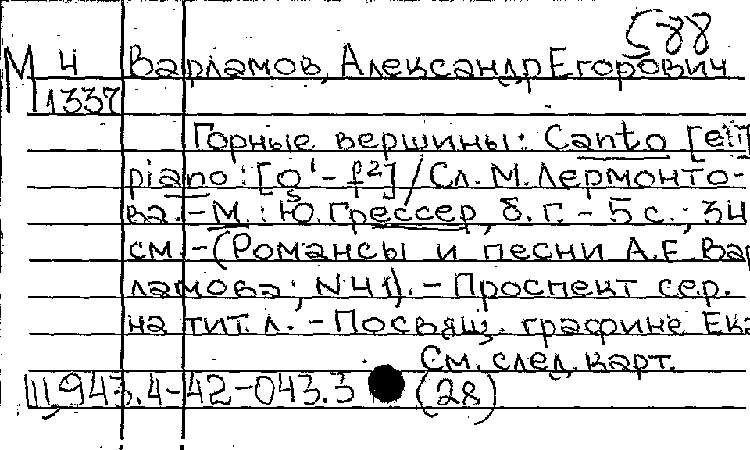 588
М 4 Варламов, Александр Егорович
П 1337
Горные вершины: Canto [e il]
piano: [g¹-f²] / Сл. М. Лермонто-
ва. - М.: Ю. Грессер, б. г. - 5 с.; 34
см. - (Романсы и песни А.Е Вар
ламова; N41). - Проспект сер.
на тит. л. - Посвящ. графине Ека
См. след. карт.
Ш943.4-42-043.3 (28)